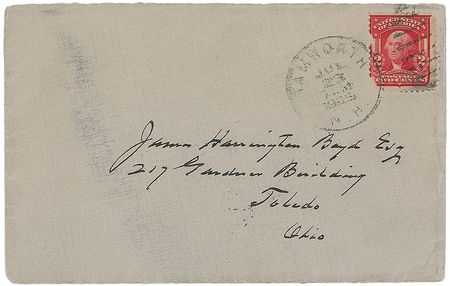 UNITED STATES
OF AMERICA
2 2
POSTAGE
TWO CENTS
TAMWORTH
JUL
N.H.
James Harrington Boyd Esq
217 Gardner Building
Toledo
Ohio